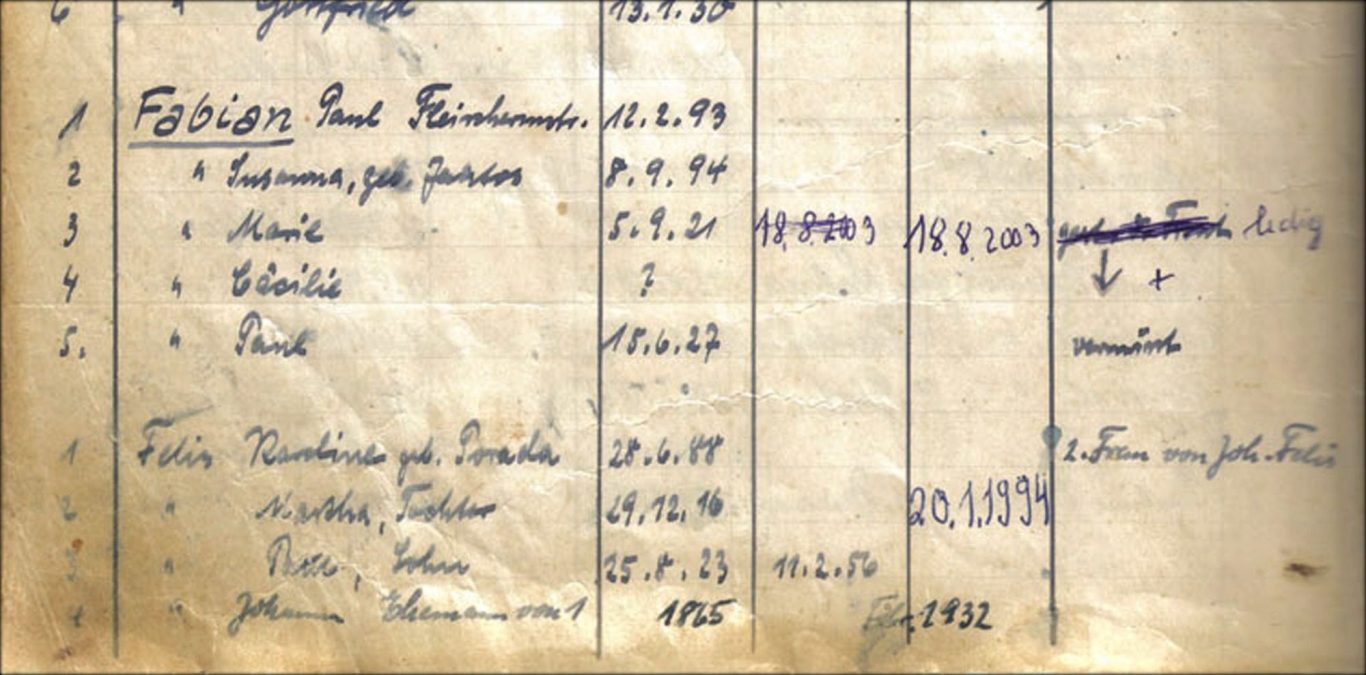 6 " Gottfried 13.1.30
1 Fabian Paul Fleischermstr. 12.2.93
2 " Susanna, geb. 8.9.94
3 " Marie 5.9.21 18.8.2003 18.8.2003 ledig
4 " Cäcilie ? +
5. " Paul 15.6.27 vermisst
1 Felix Karoline geb. Porada 28.6.88 2. Frau von Joh. Felix
2 " Martha, Tochter 29.12.16 20.1.1994
3 " Sohn 25.8.23 11.2.56
4 " Johann Ehemann von 1 1865 Febr. 1932